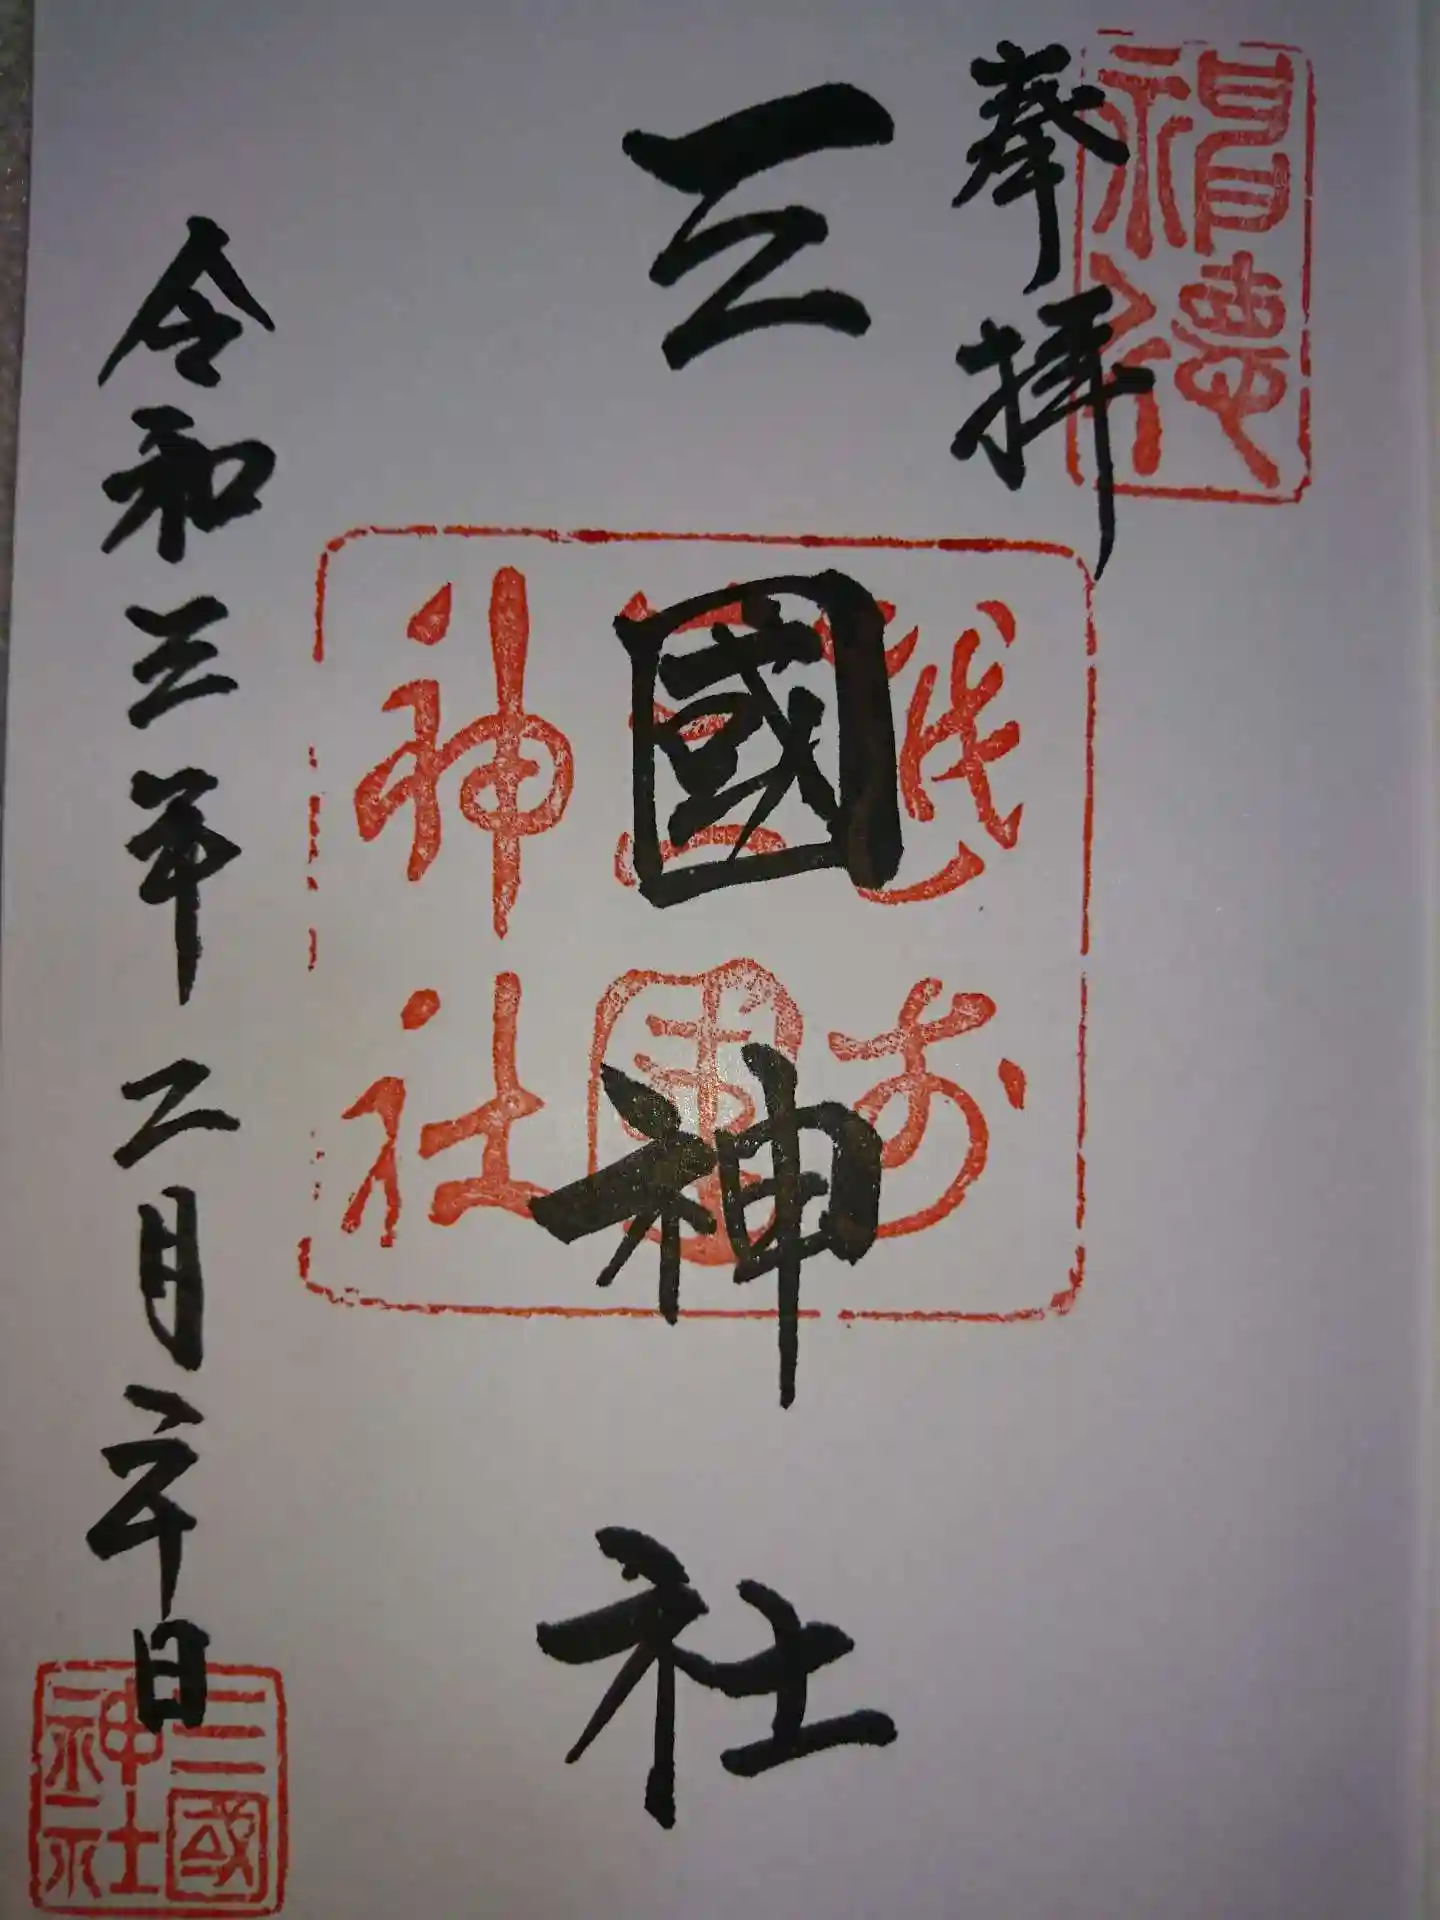 奉拝
三國神社
令和三年二月二十日
神徳
越前
三國
神社
三國
神社